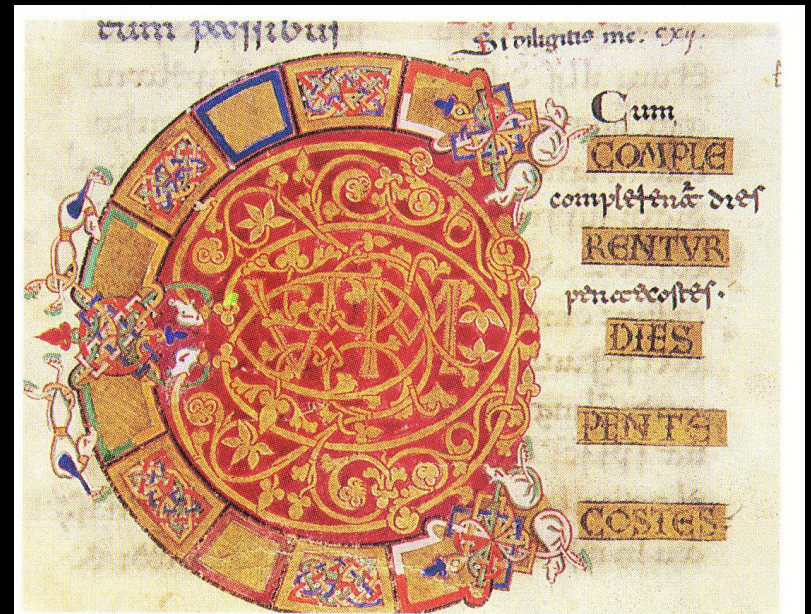 tum possibus
Si diligitis me. cxij.
Cum
COMPLE
complerent dies
RENTVR
pentecostes.
DIES
PENTE
COSTES.
VM